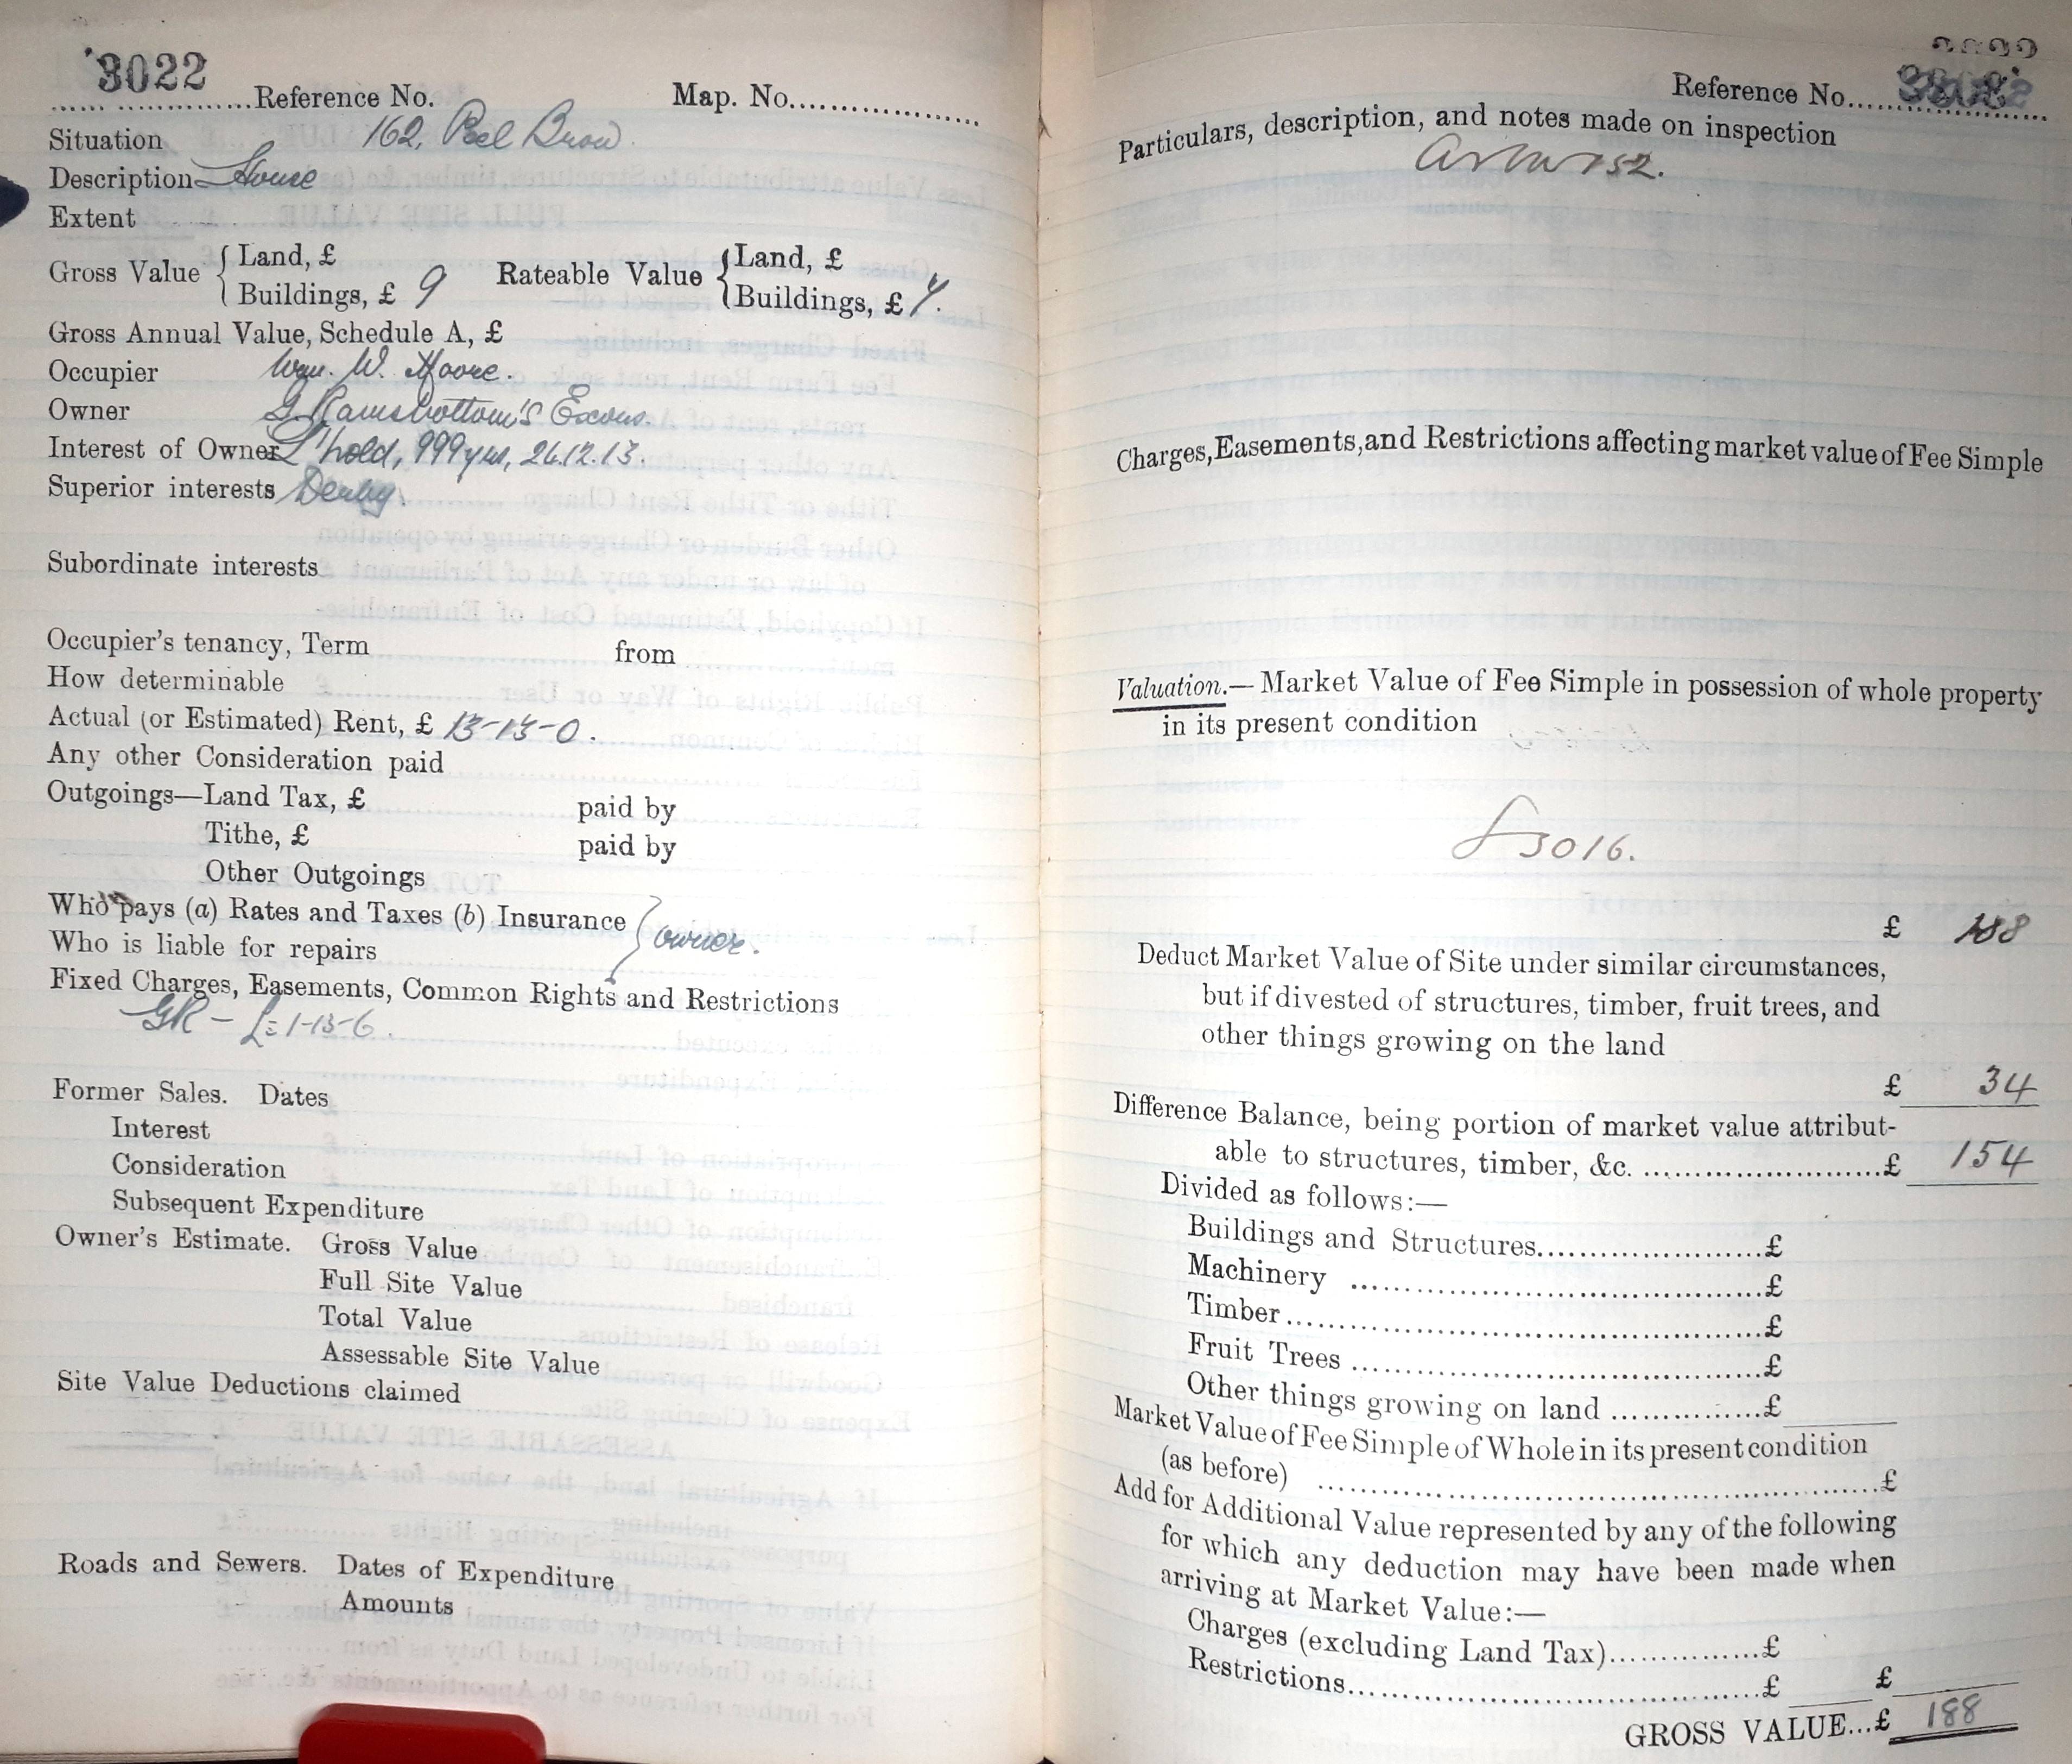 3022
Reference No. Map. No.
Situation 162, Peel Brow.
Description House
Extent
Gross Value { Land, £ Rateable Value { Land, £
Buildings, £ 9 Buildings, £ 7.
Gross Annual Value, Schedule A, £
Occupier Wm. W. Moore.
Owner Ramsbottom's Exons.
Interest of Owner L'hold, 999 yrs, 26.12.13.
Superior interests Derby.
Subordinate interests
Occupier's tenancy, Term from
How determinable
Actual (or Estimated) Rent, £ 13-13-0.
Any other Consideration paid
Outgoings—Land Tax, £ paid by
Tithe, £ paid by
Other Outgoings
Who pays (a) Rates and Taxes (b) Insurance } owner.
Who is liable for repairs
Fixed Charges, Easements, Common Rights and Restrictions
GR - £1-13-6.
Former Sales. Dates
Interest
Consideration
Subsequent Expenditure
Owner's Estimate. Gross Value
Full Site Value
Total Value
Assessable Site Value
Site Value Deductions claimed
Roads and Sewers. Dates of Expenditure
Amounts
Reference No.
Particulars, description, and notes made on inspection
152.
Charges, Easements, and Restrictions affecting market value of Fee Simple
Valuation.—Market Value of Fee Simple in possession of whole property
in its present condition
3016.
£ 188
Deduct Market Value of Site under similar circumstances,
but if divested of structures, timber, fruit trees, and
other things growing on the land
£ 34
Difference Balance, being portion of market value attribut-
able to structures, timber, &c. £ 154
Divided as follows:—
Buildings and Structures £
Machinery £
Timber £
Fruit Trees £
Other things growing on land £
Market Value of Fee Simple of Whole in its present condition
(as before) £
Add for Additional Value represented by any of the following
for which any deduction may have been made when
arriving at Market Value:—
Charges (excluding Land Tax) £
Restrictions £ £
GROSS VALUE...£ 188